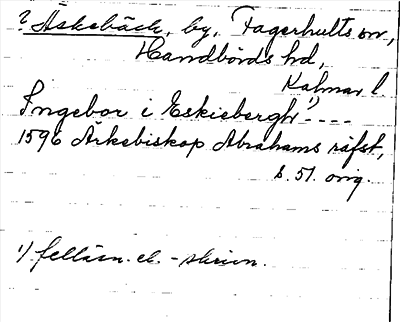 ? Äskebäck, by, Fagerhults sn,
Handbörds hd,
Kalmar l.
Ingebor i Eskiebergh 1) - - - -
1596 Ärkebiskop Abrahams räfst,
s. 51. orig.
1) felläsn. el. -skrivn.